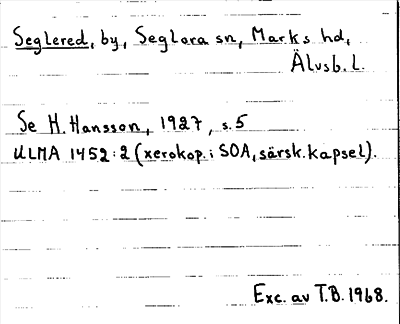 Seglered, by, Seglora sn, Marks hd,
Älvsb. L.
Se H. Hansson, 1927, s. 5
ULMA 1452:2 (xerokop. i SOA, särsk. kapsel).
Exc. av T.B. 1968.